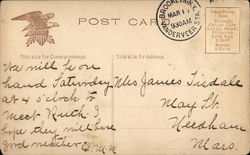 POST CARD
BROOKLYN, N.Y.
MAR 11
930AM
VANDERVEER STA.
This side for Correspondence.
This side for Address.
We will be on
hand Saturday
at 4 o'clock to
meet Ruth &
hope they will have
good weather
Mrs James Tisdale
May St.
Needham
Mass.